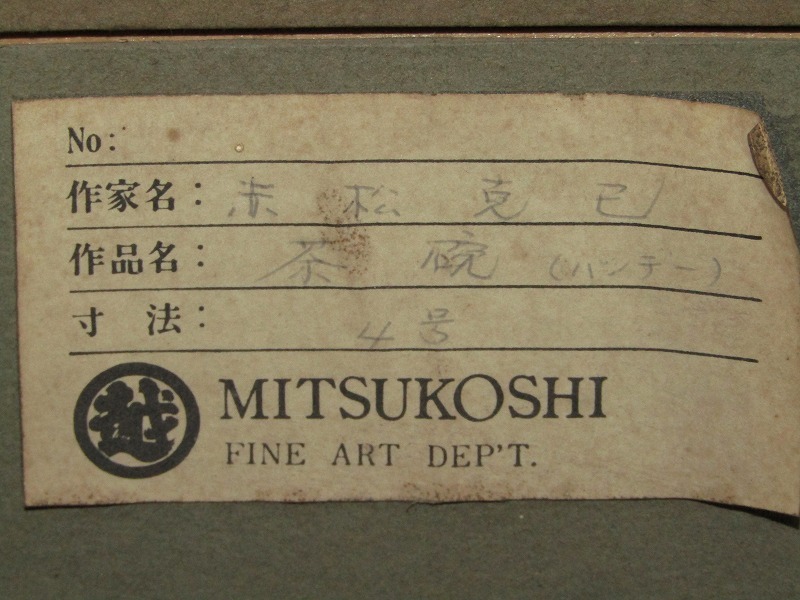 No:
作家名: 赤松克己
作品名: 茶碗 (ハンテー)
寸 法: 4号
越
MITSUKOSHI
FINE ART DEP'T.